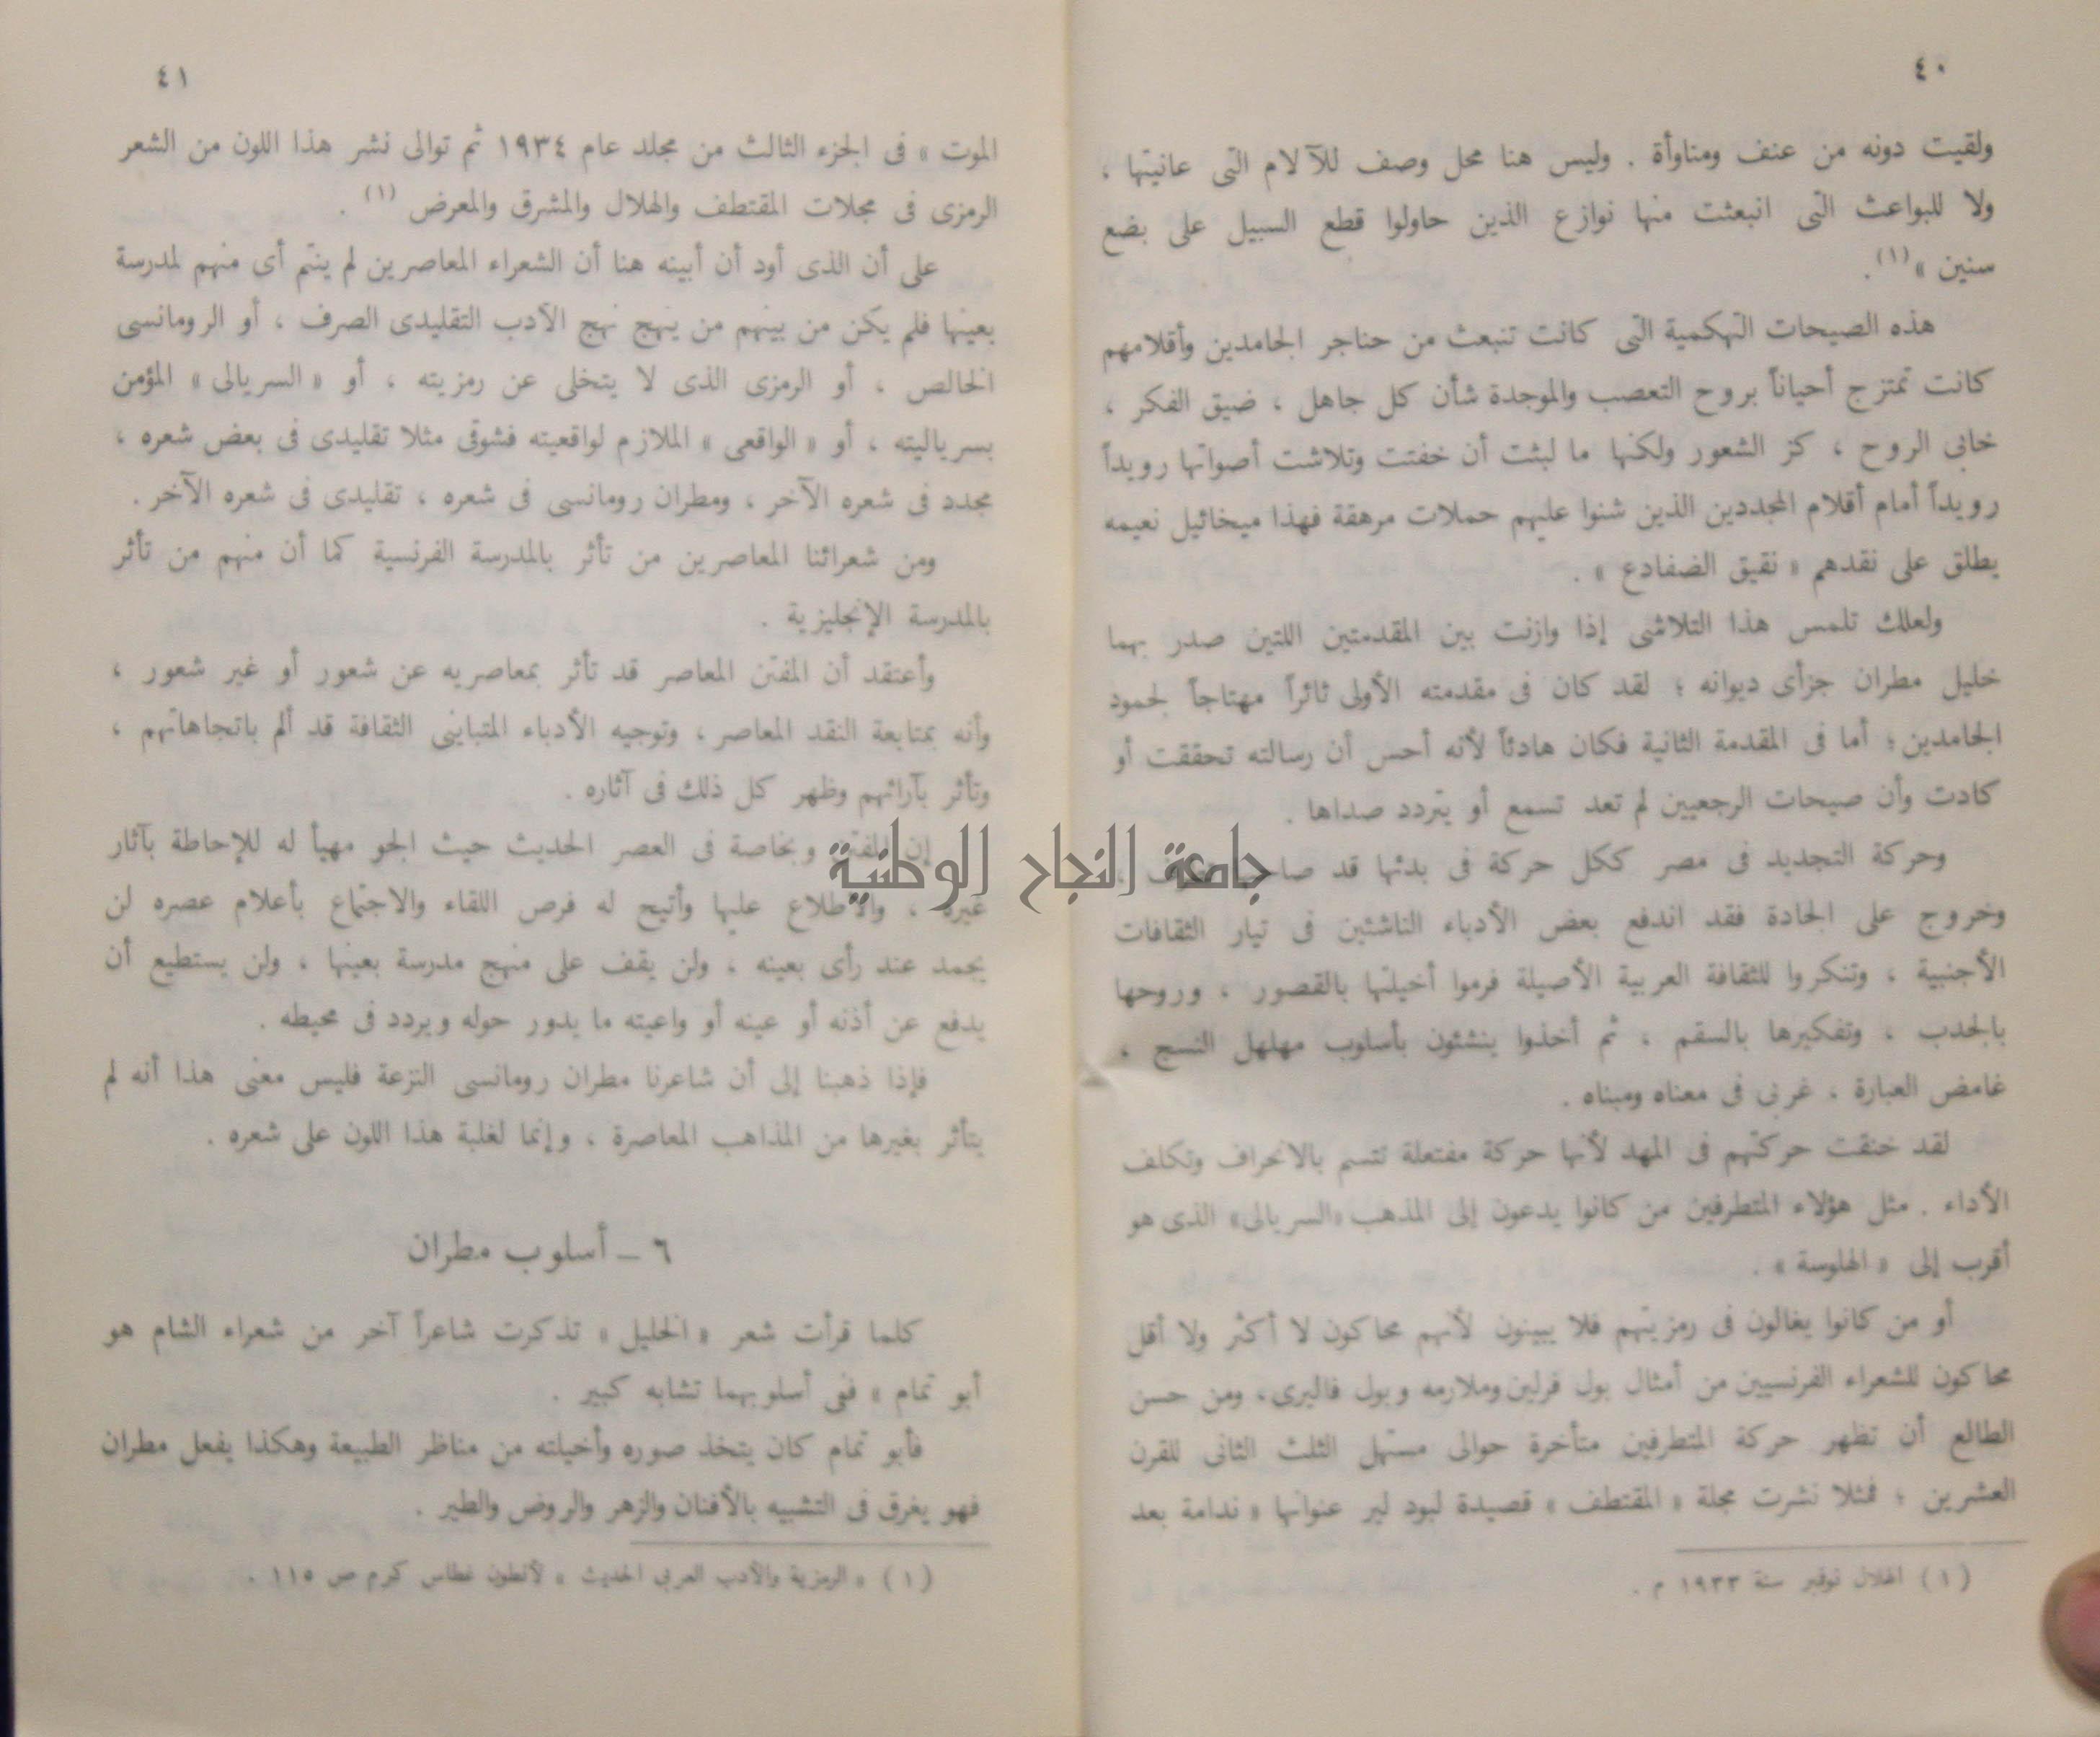 ٤٠
ولقيت دونه من عنف ومناوأة . وليس هنا محل وصف للآلام التى عانيتها ،
ولا للبواعث التى انبعثت منها نوازع الذين حاولوا قطع السبيل على بضع
سنين » (١) .
هذه الصيحات التهكمية التى كانت تنبعث من حناجر الجامدين وأقلامهم
كانت تمتزج أحياناً بروح التعصب والموجدة شأن كل جاهل ، ضيق الفكر ،
خابى الروح ، كز الشعور ولكنها ما لبثت أن خفتت وتلاشت أصواتها رويداً
رويداً أمام أقلام المجددين الذين شنوا عليهم حملات مرهقة فهذا ميخائيل نعيمه
يطلق على نقدهم « نقيق الضفادع » .
ولعلك تلمس هذا التلاشى إذا وازنت بين المقدمتين اللتين صدر بهما
خليل مطران جزأى ديوانه ؛ لقد كان فى مقدمته الأولى ثائراً مهتاجاً لجمود
الجامدين ؛ أما فى المقدمة الثانية فكان هادئاً لأنه أحس أن رسالته تحققت أو
كادت وأن صيحات الرجعيين لم تعد تسمع أو يتردد صداها .
وحركة التجديد فى مصر ككل حركة فى بدئها قد
وخروج على الجادة فقد اندفع بعض الأدباء الناشئين فى تيار الثقافات
الأجنبية ، وتنكروا للثقافة العربية الأصيلة فرموا أخيلتها بالقصور ، وروحها
بالجدب ، وتفكيرها بالسقم ، ثم أخذوا ينشئون بأسلوب مهلهل النسج ،
غامض العبارة ، غربى فى معناه ومبناه .
لقد خنقت حركتهم فى المهد لأنها حركة مفتعلة تتسم بالانحراف وتكلف
الأداء . مثل هؤلاء المتطرفين من كانوا يدعون إلى المذهب «السريالى» الذى هو
أقرب إلى « الهلوسة » .
أو من كانوا يغالون فى رمزيتهم فلا يبينون لأنهم محاكون لا أكثر ولا أقل
محاكون للشعراء الفرنسيين من أمثال بول فرلين وملارمه وبول فاليرى ، ومن حسن
الطالع أن تظهر حركة المتطرفين متأخرة حوالى مستهل الثلث الثانى للقرن
العشرين ؛ فمثلا نشرت مجلة « المقتطف » قصيدة لبود لير عنوانها « ندامة بعد
(١) الهلال نوفمبر سنة ١٩٣٣ م .
٤١
الموت » فى الجزء الثالث من مجلد عام ١٩٣٤ ثم توالى نشر هذا اللون من الشعر
الرمزى فى مجلات المقتطف والهلال والمشرق والمعرض (١) .
على أن الذى أود أن أبينه هنا أن الشعراء المعاصرين لم ينتم أى منهم لمدرسة
بعينها فلم يكن من بينهم من ينهج نهج الآدب التقليدى الصرف ، أو الرومانسى
الخالص ، أو الرمزى الذى لا يتخلى عن رمزيته ، أو « السريالى » المؤمن
بسرياليته ، أو « الواقعى » الملازم لواقعيته فشوقى مثلا تقليدى فى بعض شعره ،
مجدد فى شعره الآخر ، ومطران رومانسى فى شعره ، تقليدى فى شعره الآخر .
ومن شعرائنا المعاصرين من تأثر بالمدرسة الفرنسية كما أن منهم من تأثر
بالمدرسة الإنجليزية .
وأعتقد أن المفتن المعاصر قد تأثر بمعاصريه عن شعور أو غير شعور ،
وأنه بمتابعة النقد المعاصر ، وتوجيه الأدباء المتباينى الثقافة قد ألم باتجاهاتهم ،
وتأثر بآرائهم وظهر كل ذلك فى آثاره .
إن المفتن وبخاصة فى العصر الحديث حيث الجو مهيأ له للإحاطة بآثار
غيره ، والاطلاع عليها وأتيح له فرص اللقاء والاجتماع بأعلام عصره لن
يجمد عند رأى بعينه ، ولن يقف على منهج مدرسة بعينها ، ولن يستطيع أن
يدفع عن أذنه أو عينه أو واعيته ما يدور حوله ويردد فى محيطه .
فإذا ذهبنا إلى أن شاعرنا مطران رومانسى النزعة فليس معنى هذا أنه لم
يتأثر بغيرها من المذاهب المعاصرة ، وإنما لغلبة هذا اللون على شعره .
٦ – أسلوب مطران
كلما قرأت شعر « الخليل » تذكرت شاعراً آخر من شعراء الشام هو
أبو تمام » ففى أسلوبهما تشابه كبير .
فأبو تمام كان يتخذ صوره وأخيلته من مناظر الطبيعة وهكذا يفعل مطران
فهو يغرق فى التشبيه بالأفنان والزهر والروض والطير .
(١) « الرمزية والأدب العربى الحديث » لأنطون غطاس كرم ص ١١٥ .
جامعة النجاح الوطنية